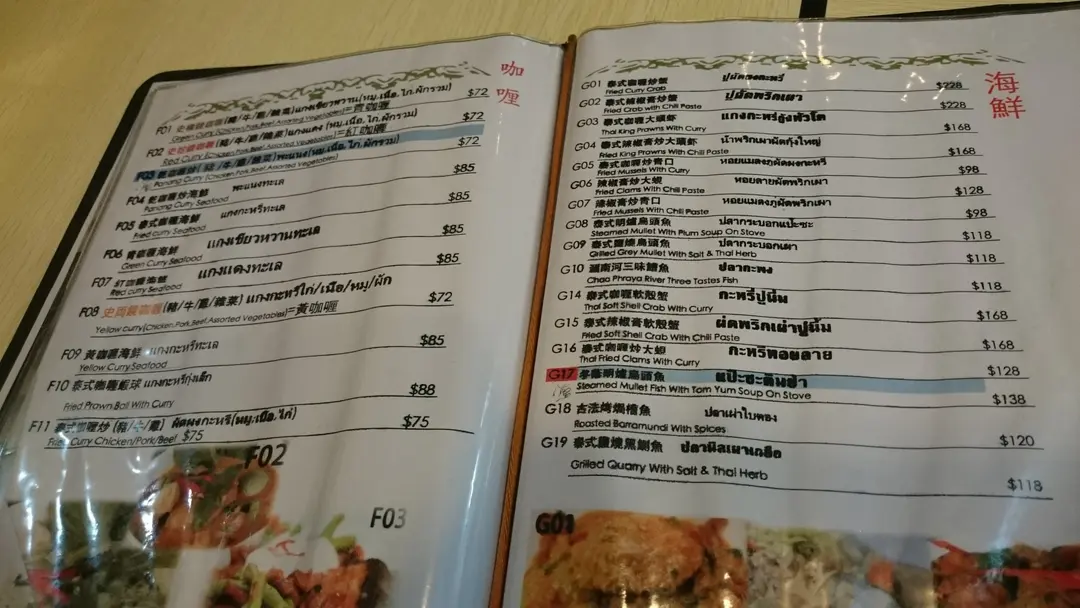 咖喱
F01
แกงเขียวหวาน(หมู,เนื้อ,ไก่,ผักรวม) $72
Green Curry(Chicken,Pork,Beef,Assorted Vegetables)
F02 (豬/牛/雞/雜菜)แกงแดง (หมู,เนื้อ,ไก่,ผักรวม) $72
Red Curry(Chicken,Pork,Beef,Assorted Vegetables)=紅咖喱
F03 พะแนง(หมู,เนื้อ,ไก่,ผักรวม) $72
Panang Curry(Chicken,Pork,Beef,Assorted Vegetables)
F04 พะแนงทะเล $85
Panang Curry Seafood
F05 泰式咖喱海鮮 แกงกะหรี่ทะเล $85
Fried curry Seafood
F06 青咖喱海鮮 แกงเขียวหวานทะเล $85
Green Curry Seafood
F07 紅咖喱海鮮 แกงแดงทะเล $85
Red curry Seafood
F08 (豬/牛/雞/雜菜) แกงกะหรี่ไก่/เนื้อ/หมู/ผัก $72
Yellow curry(Chicken,Pork,Beef,Assorted Vegetables)=黃咖喱
F09 黃咖喱海鮮 แกงกะหรี่ทะเล $85
Yellow Curry Seafood
F10 泰式咖喱蝦球 แกงกะหรี่กุ้งเด็ก $88
Fried Prawn Ball With Curry
F11 泰式咖喱炒 (豬/牛/雞) ผัดผงกะหรี่(หมู,เนื้อ,ไก่) $75
Fried Curry Chicken/Pork/Beef $75
F02
F03
海鮮
G01 泰式咖喱炒蟹 ปูผัดผงกะหรี่ $228
Fried Curry Crab
G02 泰式辣椒膏炒蟹 ปูผัดพริกเผา $228
Fried Crab with Chili Paste
G03 泰式咖喱大頭蝦 แกงกะหรี่กุ้งหัวโต $168
Thai King Prawns With Curry
G04 泰式辣椒膏炒大頭蝦 น้ำพริกเผาผัดกุ้งใหญ่ $168
Fried King Prawns With Chili Paste
G05 泰式咖喱炒青口 หอยแมลงภู่ผัดผงกะหรี่ $98
Fried Mussels With Curry
G06 辣椒膏炒大蜆 หอยลายผัดพริกเผา $128
Fried Clams With Chili Paste
G07 辣椒膏炒青口 หอยแมลงภู่ผัดพริกเผา $98
Fried Mussels With Chili Paste
G08 泰式明爐烏頭魚 ปลากระบอกแป๊ะซะ $118
Steamed Mullet With Plum Soup On Stove
G09 泰式鹽燒烏頭魚 ปลากระบอกเผา $118
Grilled Grey Mullet With Salt & Thai Herb
G10 湄南河三味鱠魚 ปลากะพง $118
Chao Phraya River Three Tastes Fish
G14 泰式咖喱軟殼蟹 กะหรี่ปูนิ่ม $168
Thai Soft Shell Crab With Curry
G15 泰式辣椒膏軟殼蟹 ผัดพริกเผาปูนิ่ม $168
Fried Soft Shell Crab With Chili Paste
G16 泰式咖喱炒大蜆 กะหรี่หอยลาย $128
Thai Fried Clams With Curry
G17 冬蔭明爐烏頭魚 แป๊ะซะต้มยำ $138
Steamed Mullet Fish With Tom Yum Soup On Stove
G18 古法烤焗鱠魚 ปลาเผาใบตอง $120
Roasted Barramundi With Spices
G19 泰式鹽燒黑鰂魚 ปลานิลเผาเกลือ $118
Grilled Quarry With Salt & Thai Herb
G01